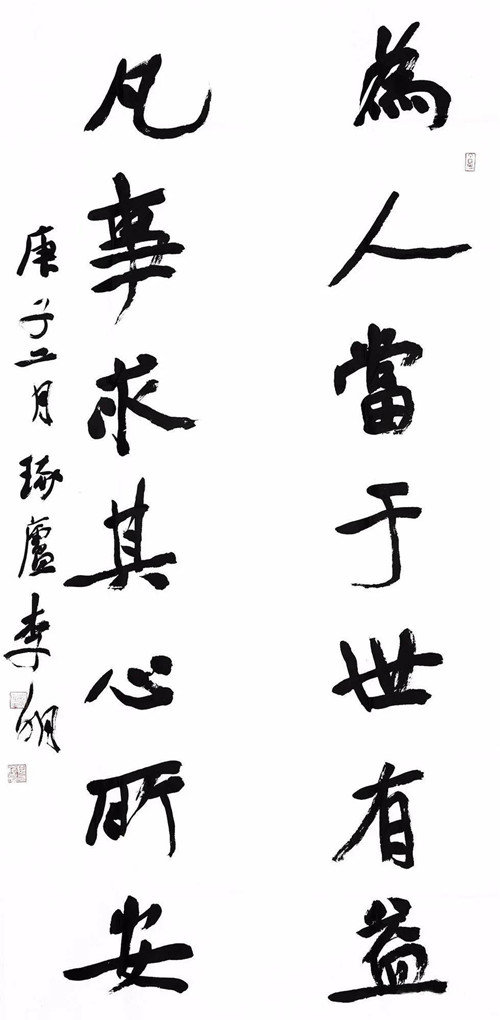 為人當于世有益
凡事求其心所安
庚子二月琢廬李明